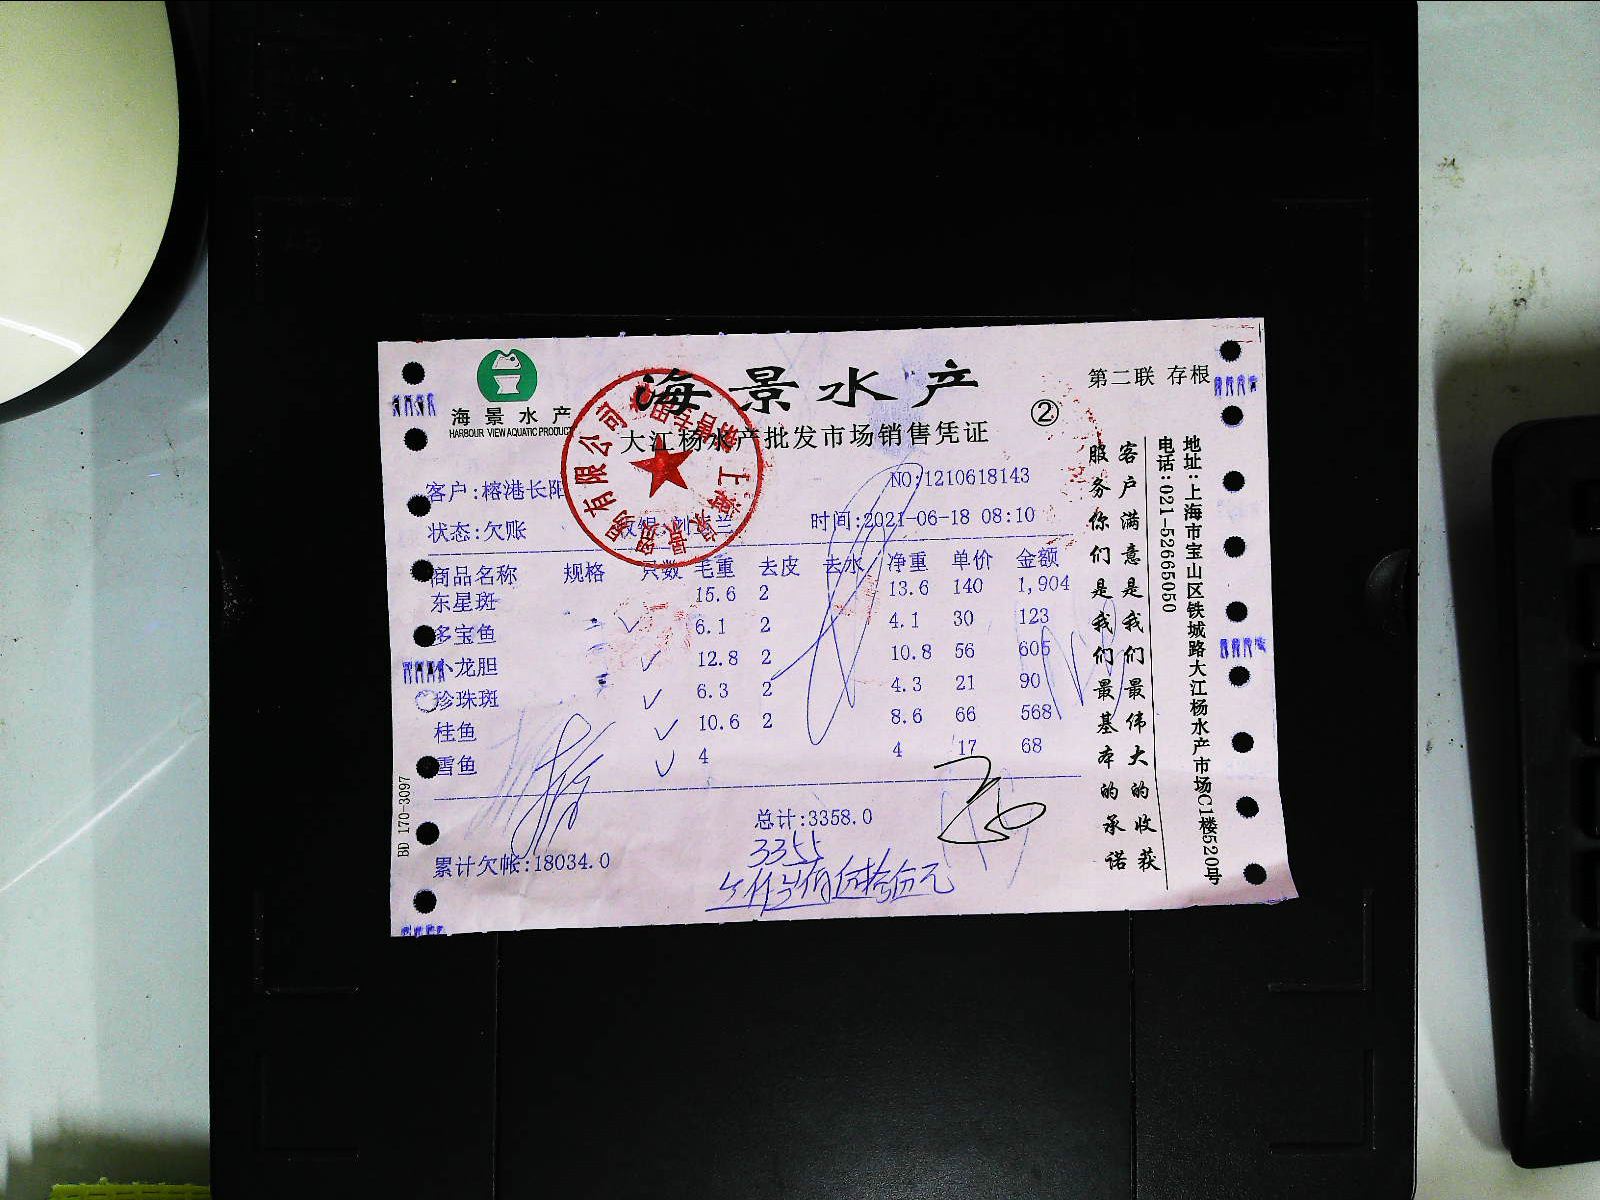 海景水产
HARBOUR VIEW AQUATIC PRODUCT
海景水产
第二联 存根
②
大江杨水产批发市场销售凭证
客户:榕港长阳
NO:1210618143
状态:欠账
时间:2021-06-18 08:10
商品名称 规格 只数 毛重 去皮 去水 净重 单价 金额
东星斑 15.6 2 13.6 140 1,904
多宝鱼 6.1 2 4.1 30 123
小龙胆 12.8 2 10.8 56 605
珍珠斑 6.3 2 4.3 21 90
桂鱼 10.6 2 8.6 66 568
雪鱼 4 4 17 68
总计:3358.0
3355
累计欠帐:18034.0
BD 170-3097
客户满意是我们最伟大的收获
服务你们是我们最基本的承诺
地址:上海市宝山区铁城路大江杨水产市场C1楼520号
电话:021-52665050
有限公司